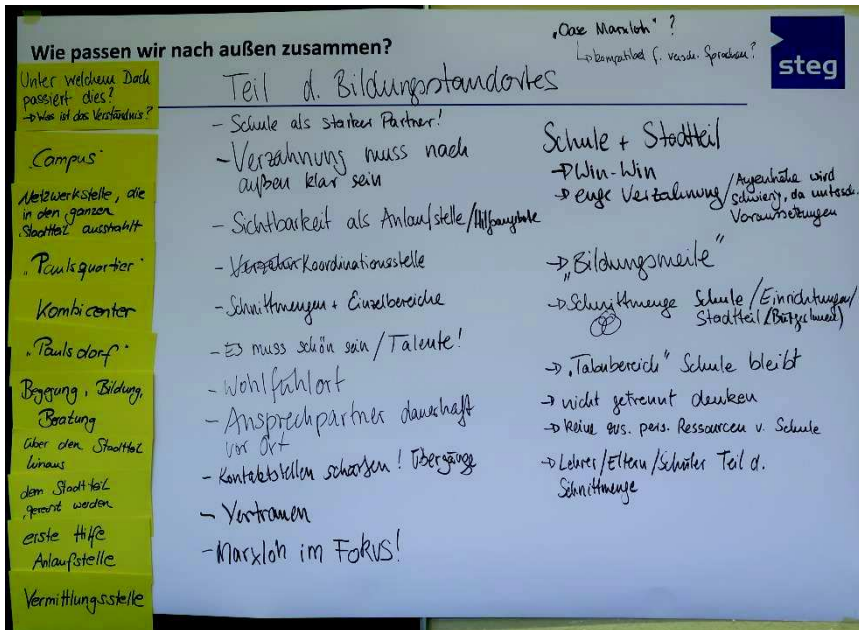 „Oase Marxloh" ?
↳ kompatibel f. versch. Sprachen?
Wie passen wir nach außen zusammen?
steg
Unter welchem Dach
passiert dies?
→ Was ist das Verständnis?
"Campus"
Netzwerkstelle, die
in den ganzen
Stadtteil ausstrahlt
"Paulsquartier"
Kombicenter
"Paulsdorf"
Begegnung, Bildung,
Beratung
über den Stadtteil
hinaus
dem Stadtteil
gerecht werden
erste Hilfe
Anlaufstelle
Vermittlungsstelle
Teil d. Bildungsstandortes
- Schule als starker Partner!
- Verzahnung muss nach
außen klar sein
- Sichtbarkeit als Anlaufstelle/Hilfsangebote
- Koordinationsstelle
- Schnittmengen + Einzelbereiche
- Es muss schön sein / Talente!
- Wohlfühlort
- Ansprechpartner dauerhaft
vor Ort
- Kontaktstellen schaffen! Übergänge
- Vertrauen
- Marxloh im FOKUS!
Schule + Stadtteil
→ Win-Win
→ enge Verzahnung/Augenhöhe wird
schwierig, da untersch.
Voraussetzungen
→ „Bildungsmeile"
→ Schnittmenge Schule/Einrichtungen/
Stadtteil (Bürger/innen)
→ „Tabubereich" Schule bleibt
→ nicht getrennt denken
→ keine pers. Ressourcen v. Schule
→ Lehrer/Eltern/Schüler Teil d.
Schnittmenge